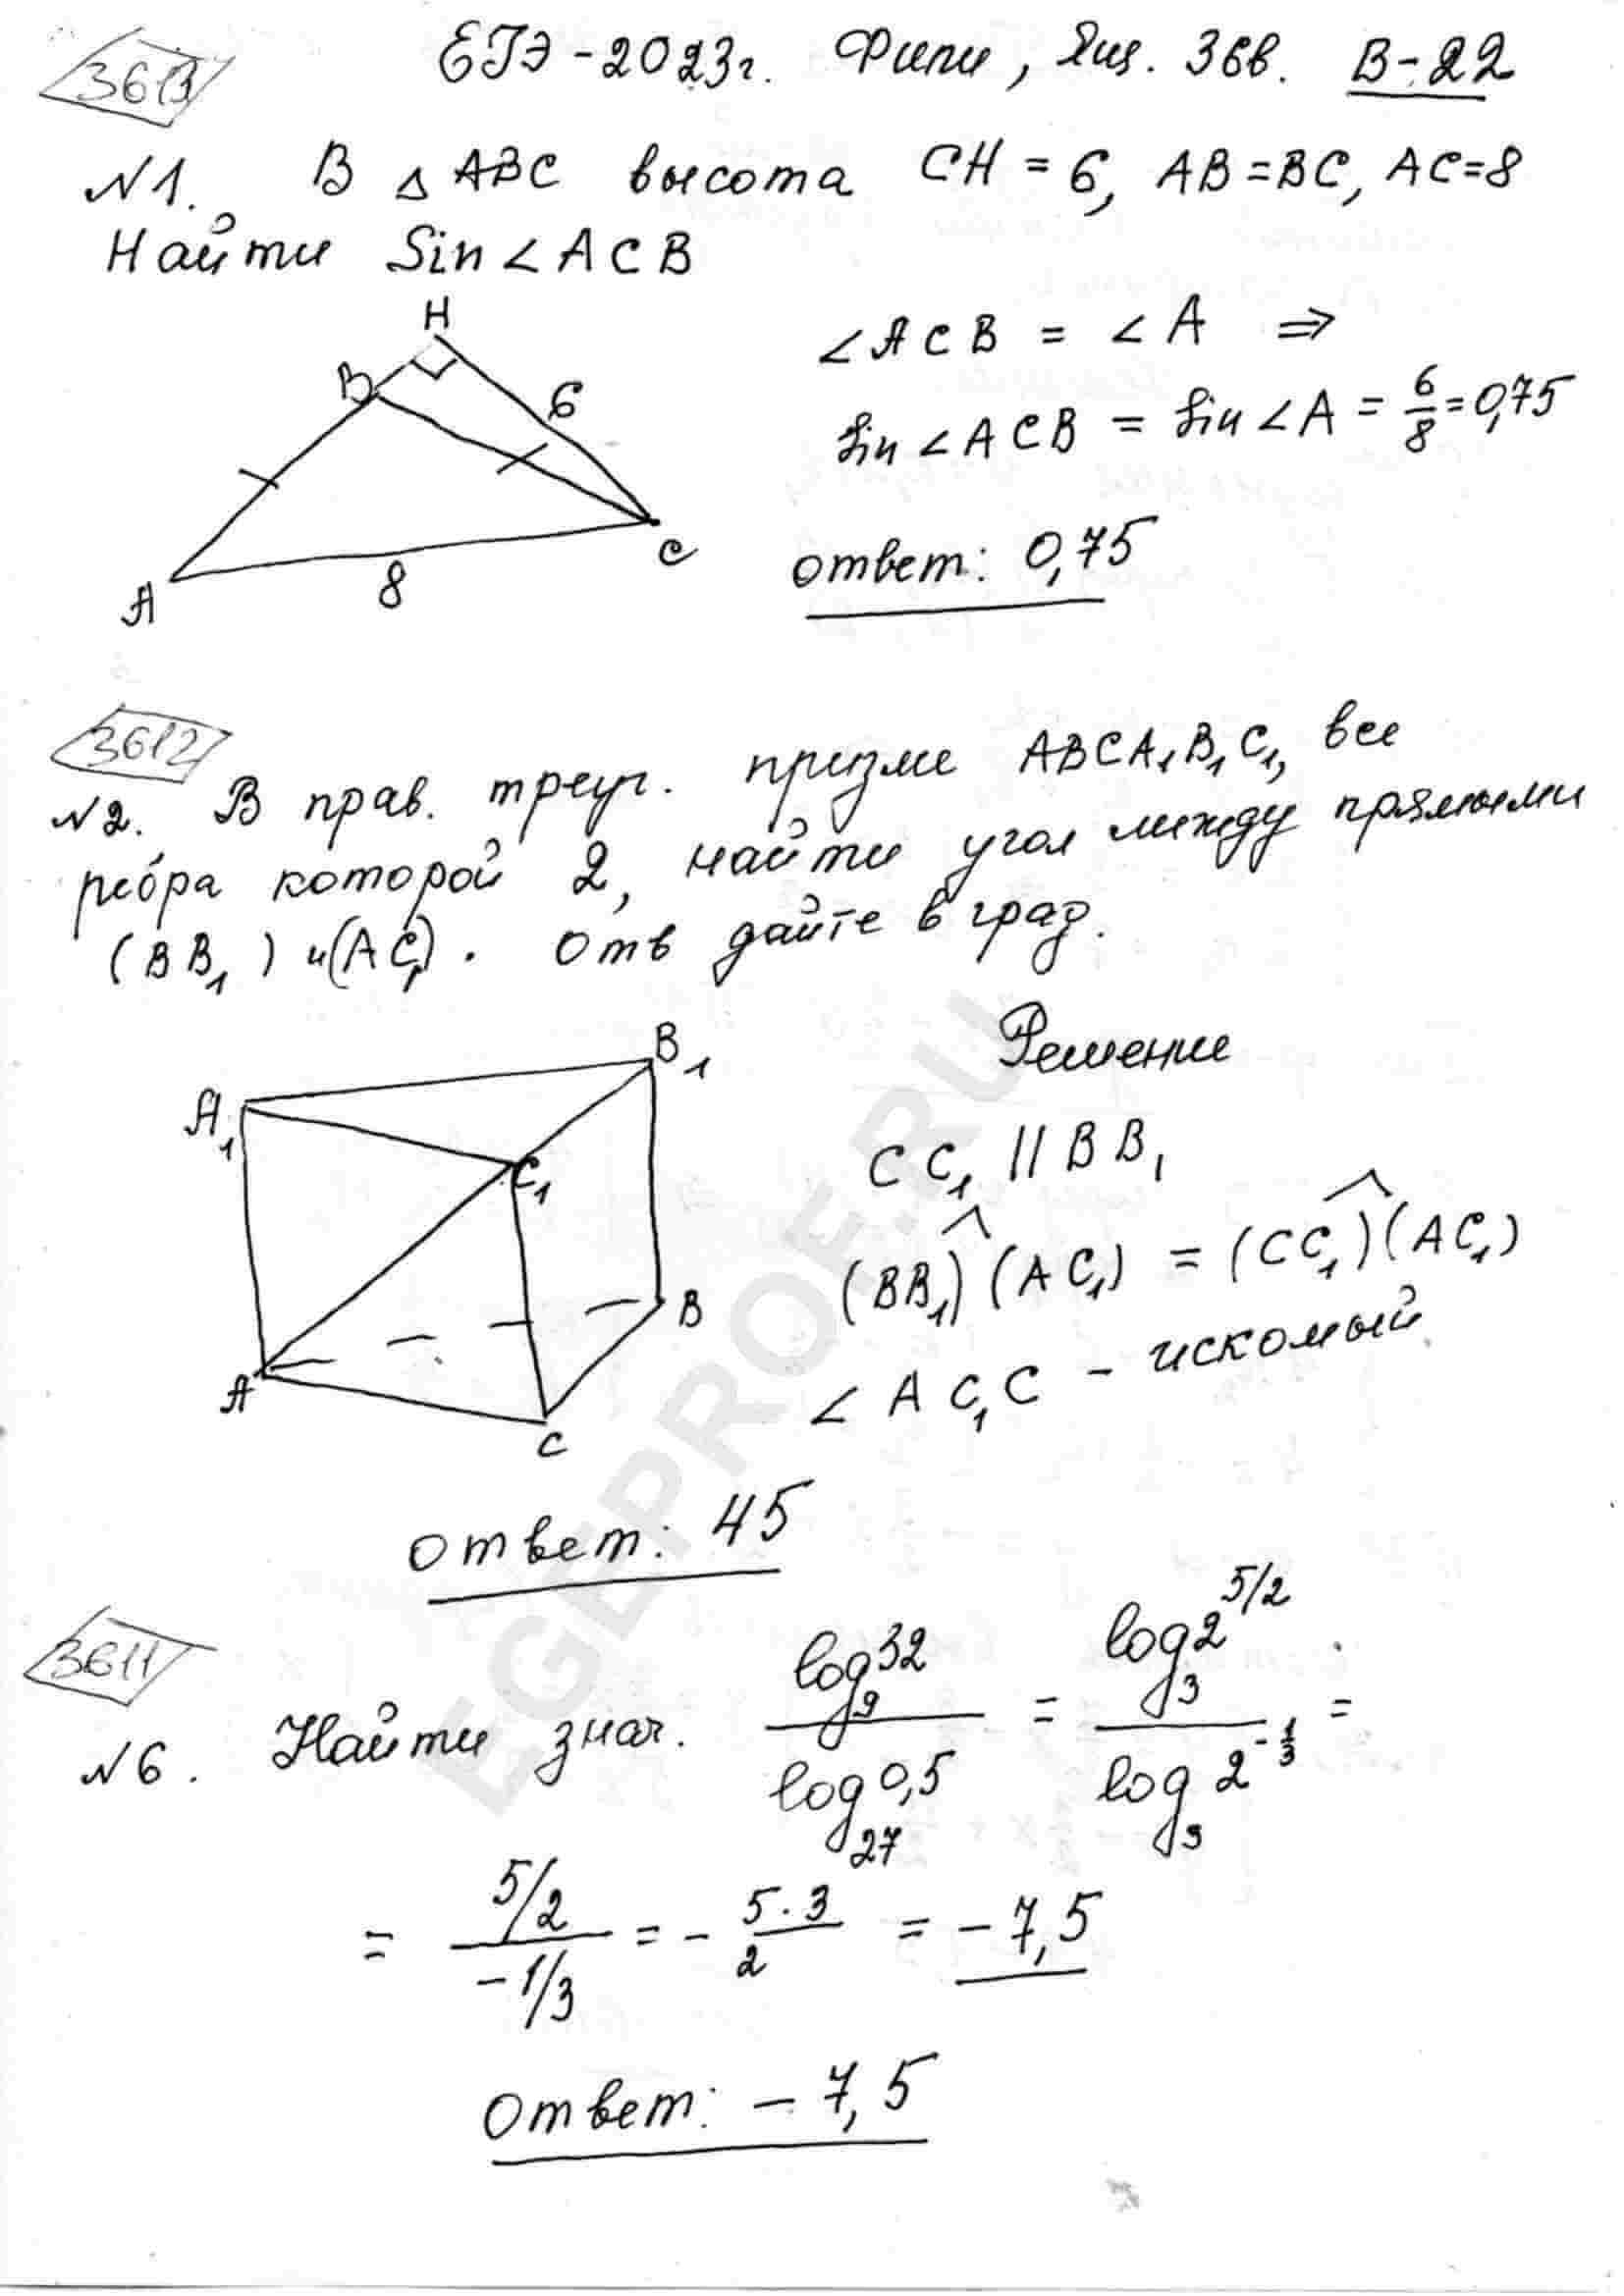 3613
ЕГЭ-2023г. Фипи, Ящ. 36в. В-22
№1. В △ ABC высота CH = 6, AB = BC, AC = 8
Найти Sin ∠ ACB
H
B
6
A
8
C
∠ACB = ∠A ⇒
Sin ∠ACB = Sin ∠A = 6/8 = 0,75
ответ: 0,75
3612
№2. В прав. треуг. призме ABCA₁B₁C₁, все
ребра которой 2, найти угол между прямыми
(BB₁) и (AC₁). Отв дайте в град.
A₁
B₁
C₁
A
B
C
Решение
CC₁ || BB₁
(BB₁)^(AC₁) = (CC₁)^(AC₁)
∠ AC₁C - искомый
ответ: 45
3611
№6. Найти знач. log₉32 / log₂₇0,5 = log₃2^(5/2) / log₃2^(-1/3) =
= 5/2 / -1/3 = - 5·3/2 = -7,5
Ответ: -7,5
EGEPROF.RU